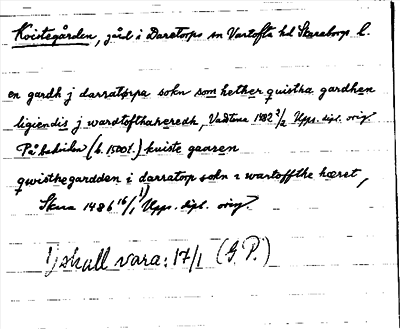 Kvistegården, gård i Daretorps sn Vartofta hd Skarab. l.
en gardh j darratorpa sokn som hether quistha gardhen
ligiendis j wardtofthaheredh, Vadstena 1482 2/2 Upps. dipl. orig.
På baksidan (b. 1500t.) kuiste gaaren
qwisthegardden i darratorp sokn i wartoffthe hæret,
Skara 1486 16/1 1) Upps. dipl. orig.
1) skall vara: 17/1 (G.P.)